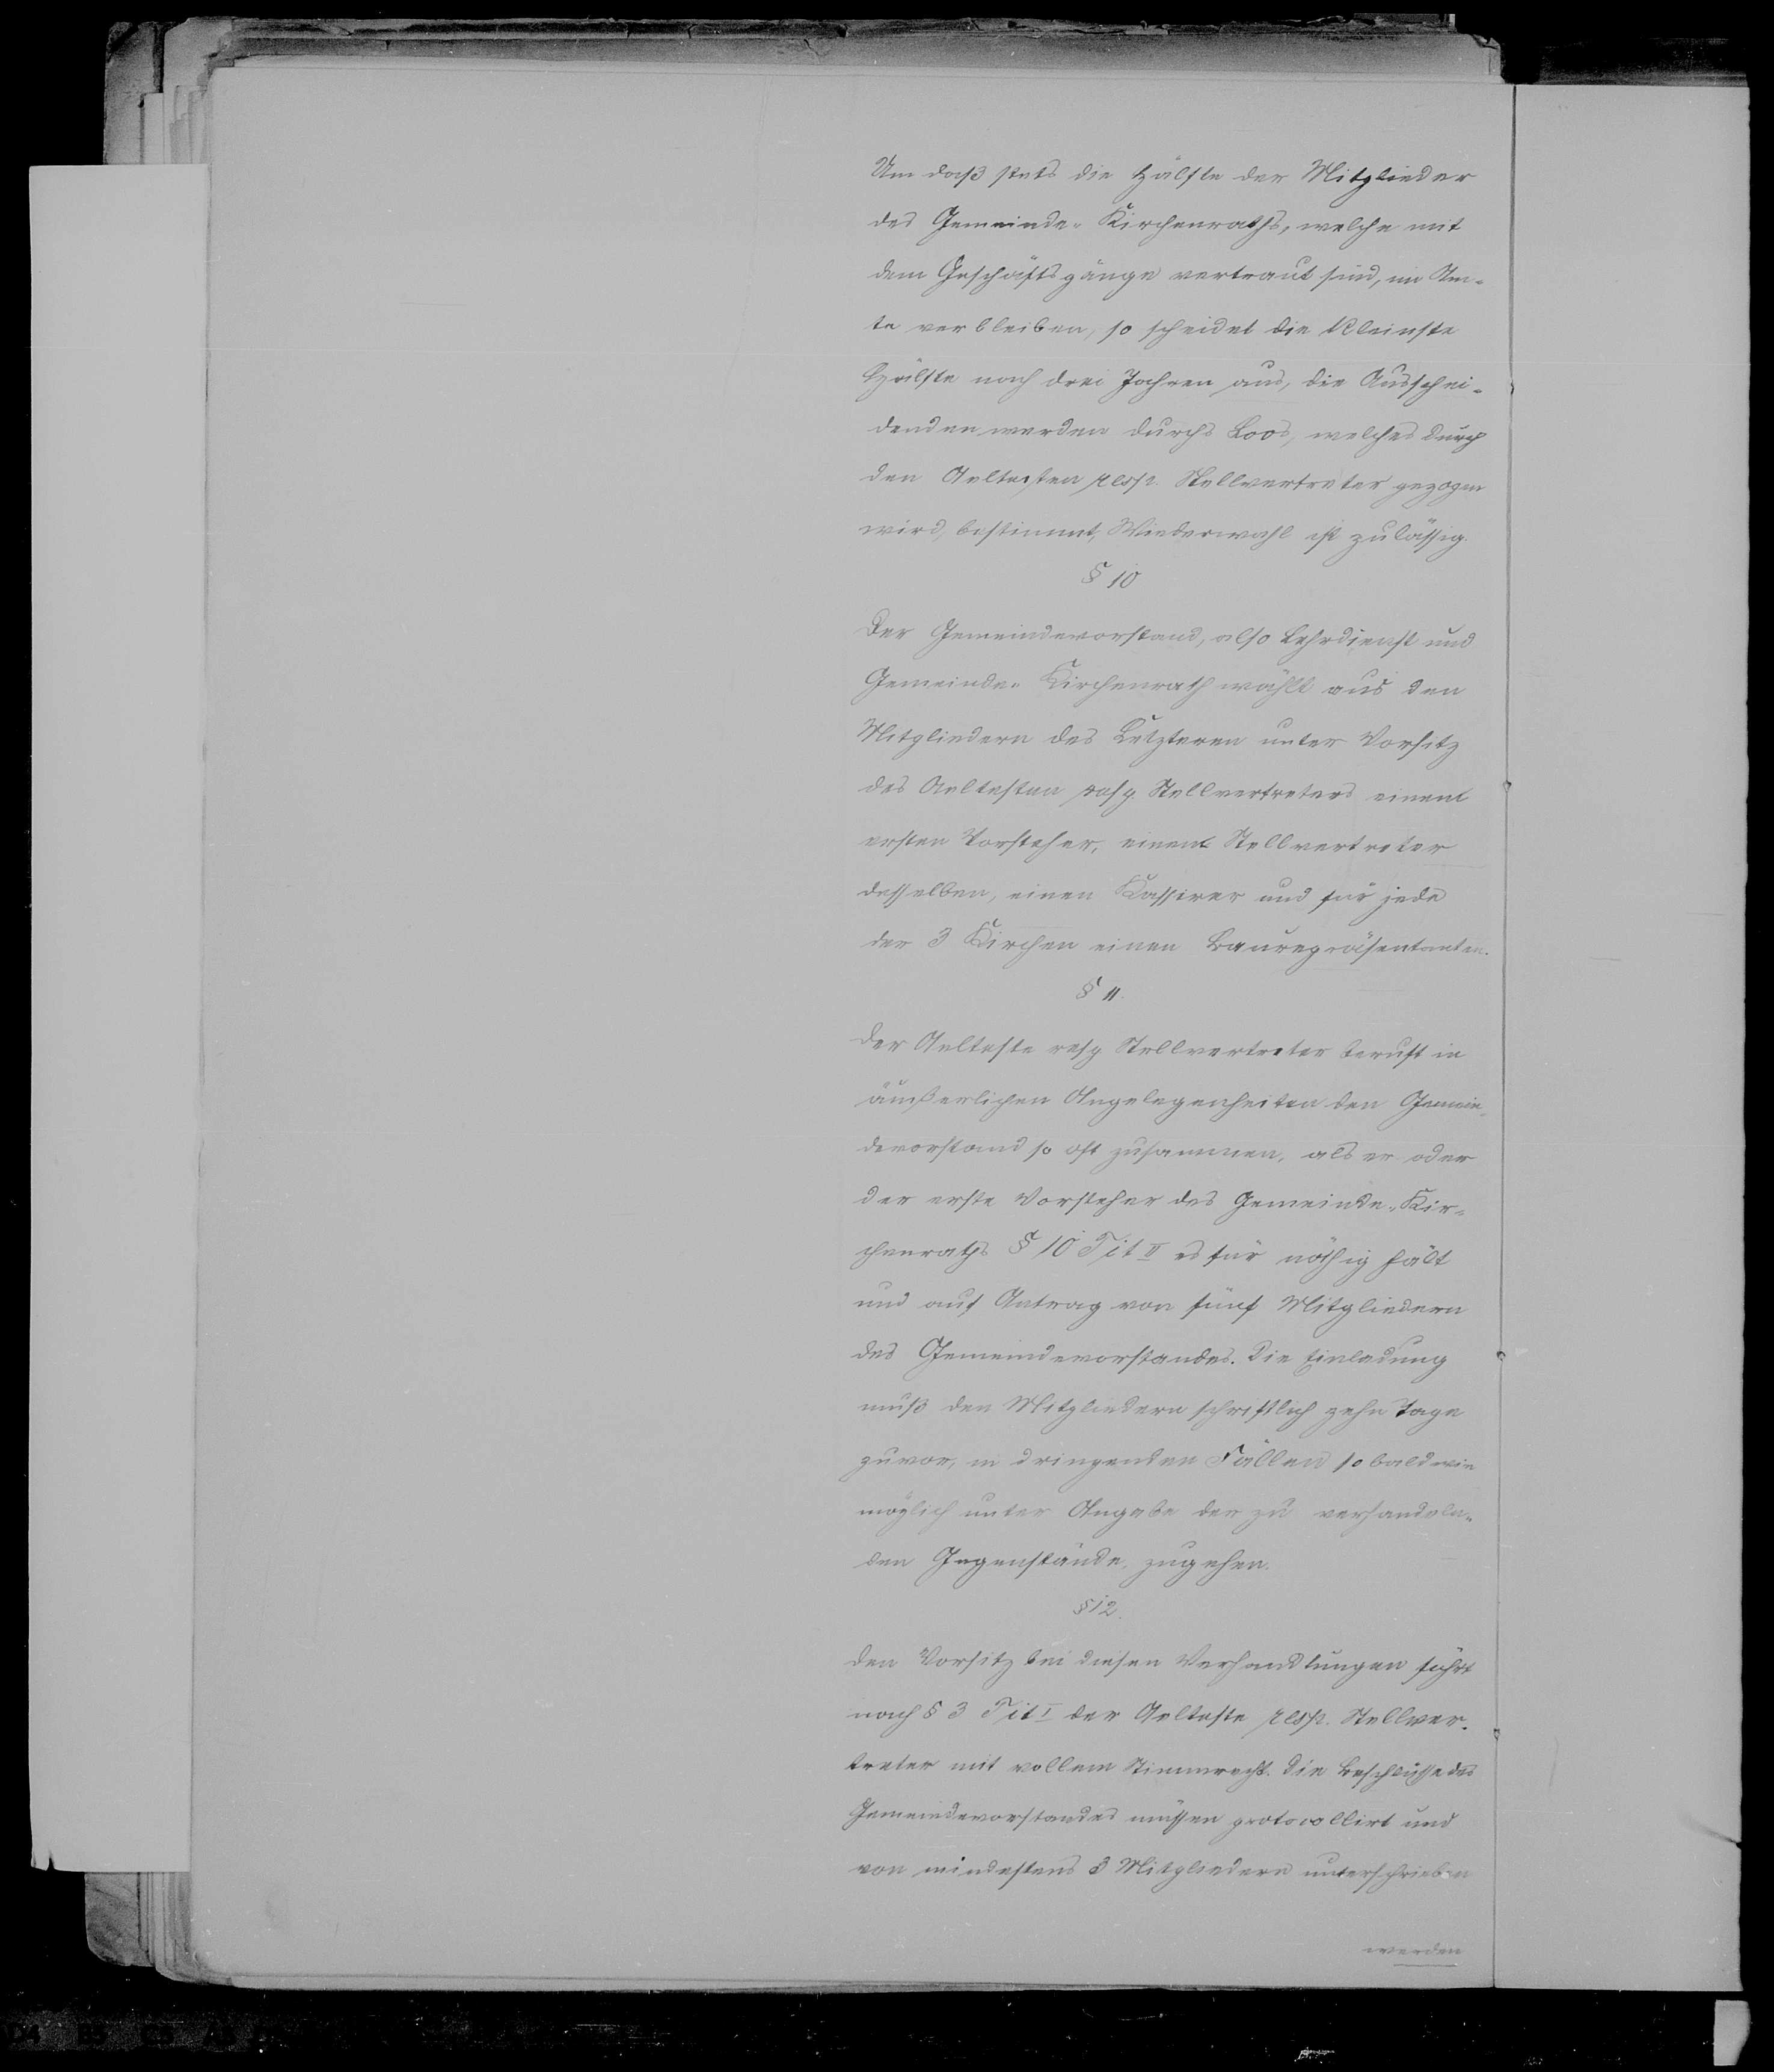 Um daß stets die Hälfte der Mitglieder
des Gemeinde-Kirchenraths, welche mit
dem Geschäftsgange vertraut sind, im Am-
te verbleiben, so scheidet die kleinste
Hälfte nach drei Jahren aus, die Ausschei-
denden werden durchs Loos, welches durch
den Aeltesten resp. Stellvertreter gezogen
wird, bestimmt, Wiederwahl ist zulässig.
§ 10
Der Gemeindevorstand, also Lehrdienst und
Gemeinde-Kirchenrath wählt aus den
Mitgliedern des Letzteren unter Vorsitz
des Aeltesten resp Stellvertreters einen
ersten Vorsteher, einen Stellvertreter
desselben, einen Kassirer und für jede
der 3 Kirchen einen Baurepräsentanten.
§ 11.
Der Aelteste resp Stellvertreter beruft in
äußerlichen Angelegenheiten den Gemein-
devorstand so oft zusammen, als er oder
der erste Vorsteher des Gemeinde-Kir-
chenraths § 10 Tit II es für nöthig hält
und auf Antrag von fünf Mitgliedern
des Gemeindevorstandes. Die Einladung
muß den Mitgliedern schriftlich zehn Tage
zuvor, in dringenden Fällen so bald wie
möglich unter Angabe der zu verhandeln-
den Gegenstände, zugehen.
§ 12.
Den Vorsitz bei diesen Verhandlungen führt
nach § 3 Tit I der Aelteste resp. Stellver-
treter mit vollem Stimmrecht. Die Beschlüsse des
Gemeindevorstandes müssen protocollirt und
von mindestens 3 Mitgliedern unterschrieben
werden